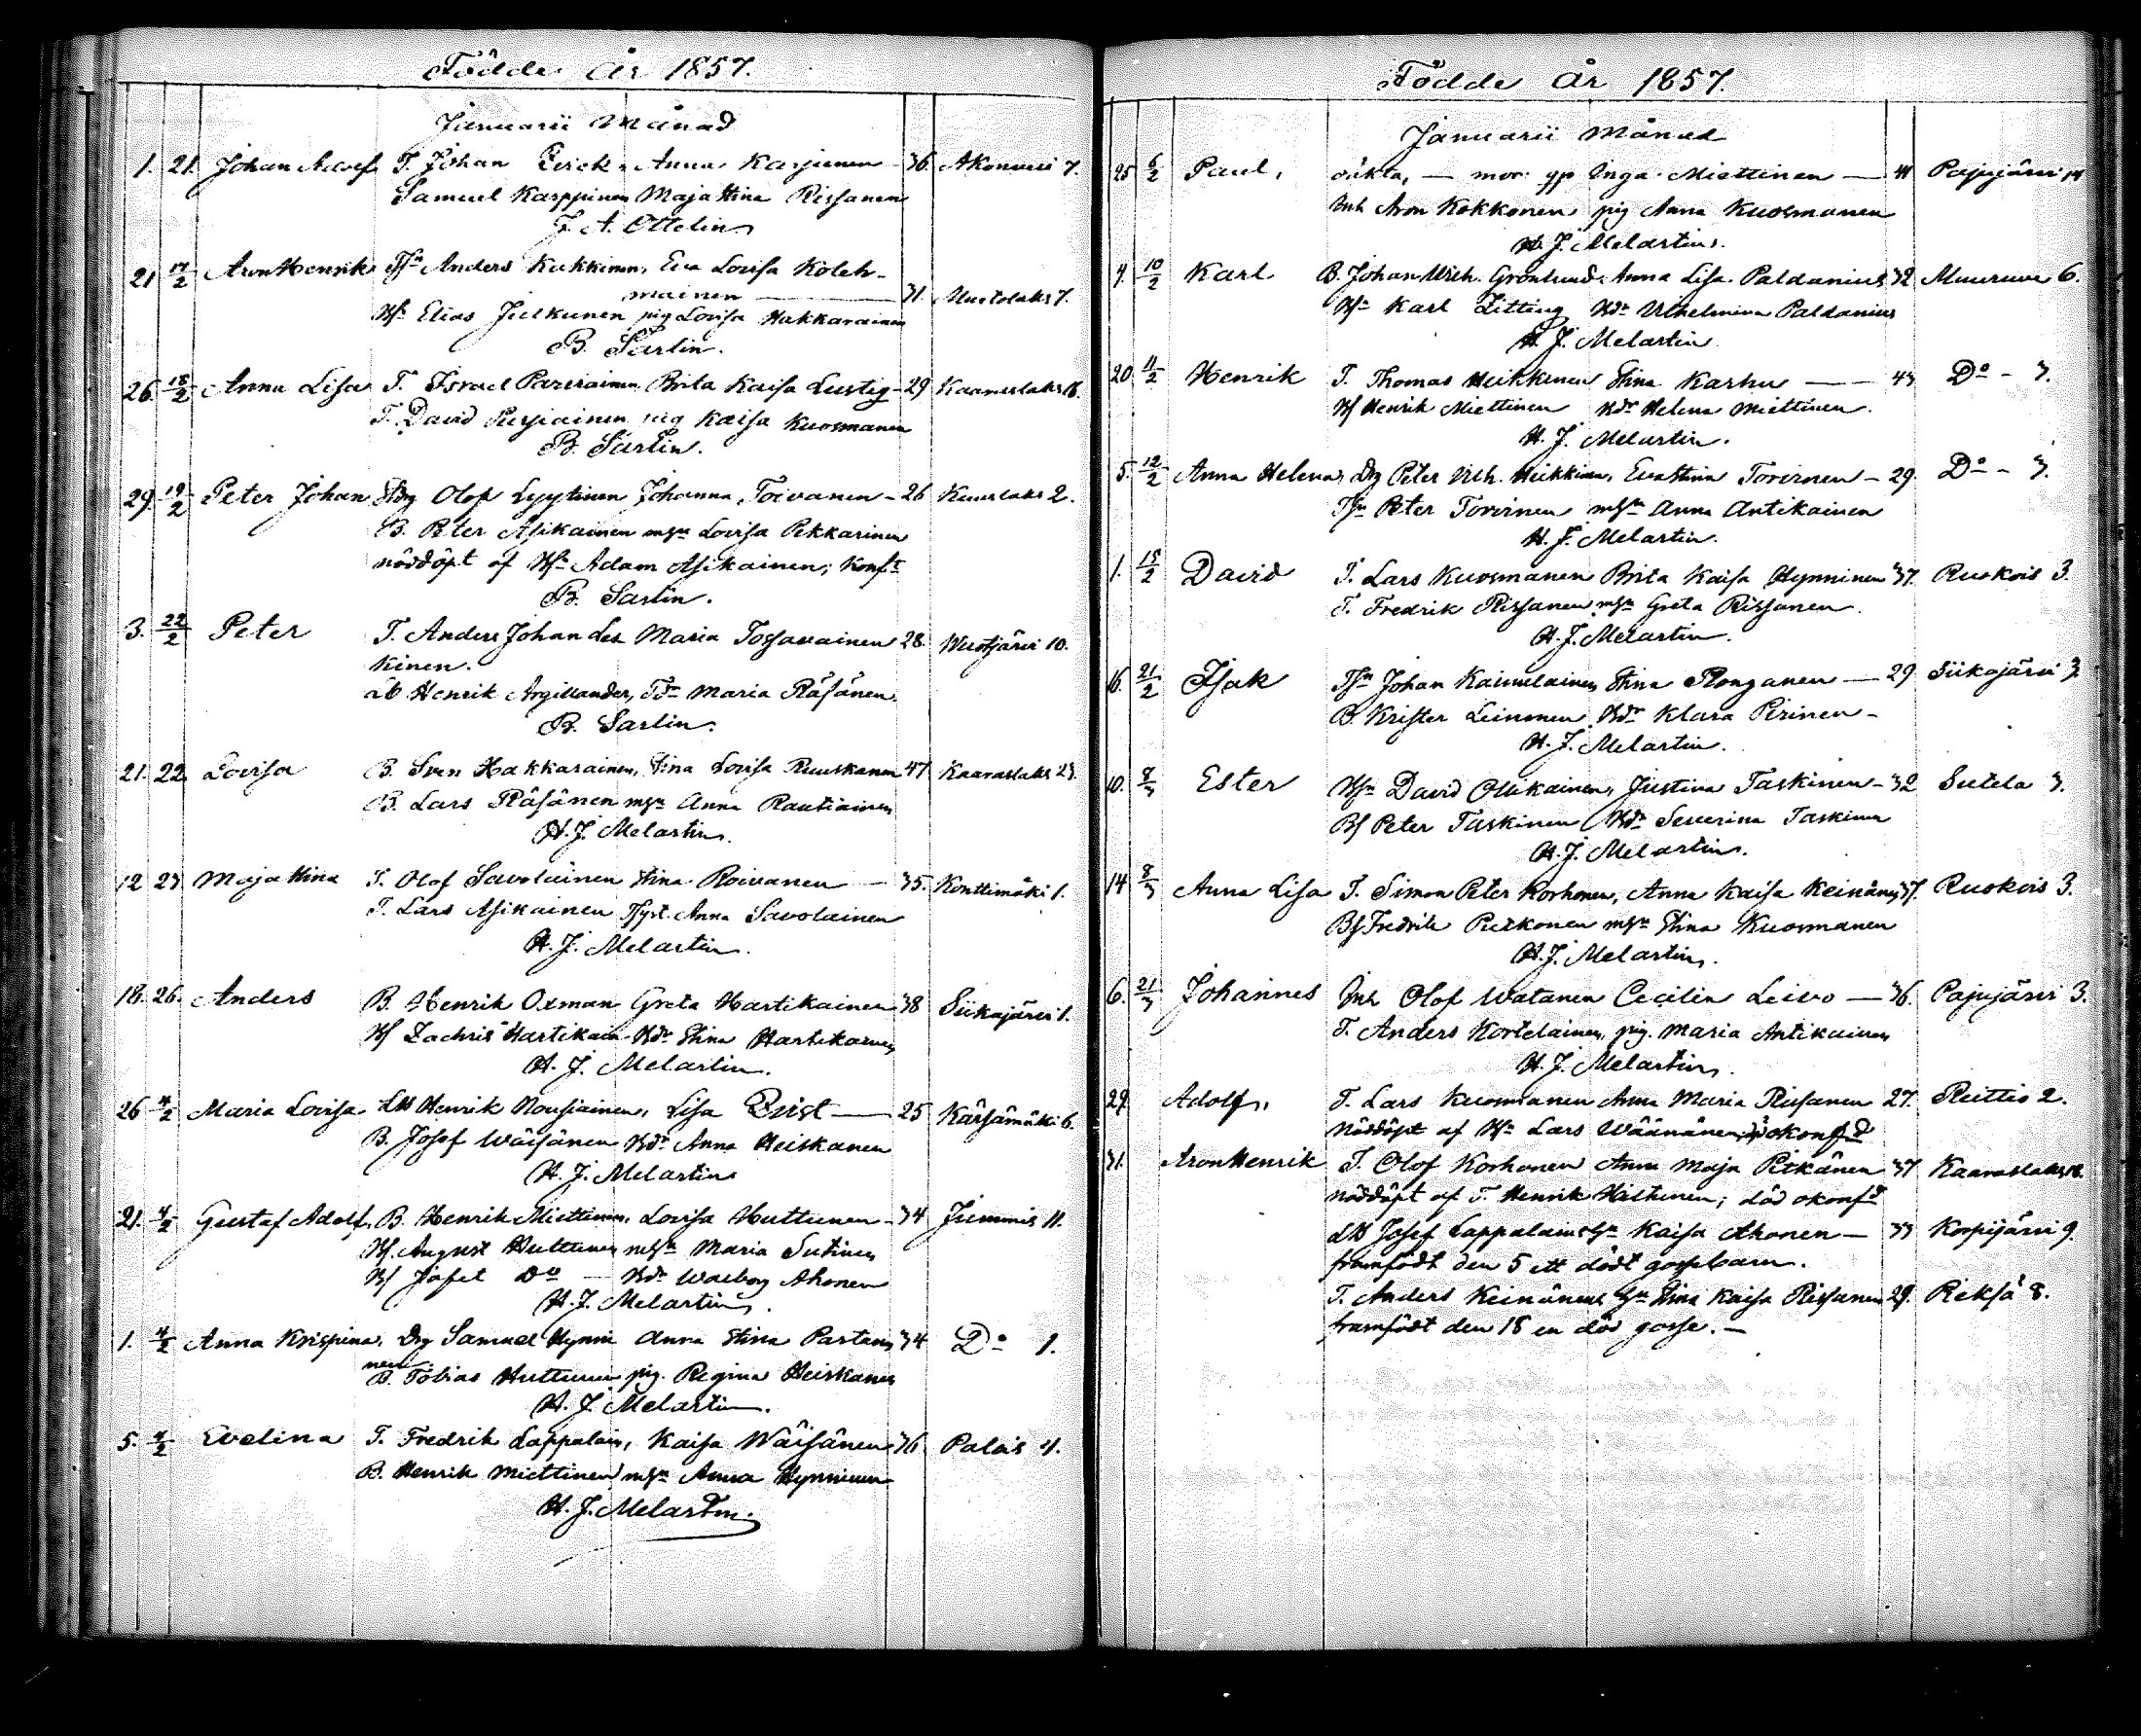 Födde år 1857.
Januarii Månad
1. 21. Johan Adolf T. Johan Anna Karjunen 36. 7.
Samuel Karppinen Maja Stina Rissanen
J. A. Ottelin
21 17/2 Aron Henrik Tsn Anders Kukkinen, Eva Lovisa Koleh-
mainen 31. Mustolaks 7.
Hsn Elias Julkunen pig Lovisa Hakkarainen
B. Sarlin.
26. 18/2 Anna Lisa T. Israel Brita Kaisa Lustig 29 Kaaraslaks 16.
T. David pig Kaisa Kuosmanen
B. Sarlin.
29. 19/2 Peter Johan Olof Lyytinen Johanna Toivanen - 26 2.
B. Peter Asikainen msn Lovisa Pekkarinen
nöddöpt af Hsn Adam Asikainen; konft
B. Sarlin.
3. 22/2 Peter T. Anders Johan Les Maria Tossavainen 28. 10.
kinen.
ab Henrik Argillander, Tdr Maria Räsänen.
B. Sarlin.
21. 22. Lovisa B. Sven Hakkarainen, Stina Lovisa Ruuskanen 47 Kaaraslaks 23.
B. Lars Räsänen msn Anna Rautiainen
H. J. Melartin.
12 23 Maja Stina T. Olof Savolainen Stina Roivanen 35. Konttimäki 1.
T. Lars Asikainen Tsyst. Anna Savolainen
H. J. Melartin.
18. 26. Anders B. Henrik Oxman Greta Hartikainen 38 Siikajärvi 1.
Hf Zachris Hartikain Hdr Stina Hartikainen
H. J. Melartin.
26 4/2 Maria Lovisa LM Henrik Nousiainen, Lisa Quist 25 Kärsämäki 6.
B. Josef Wäisänen Hdr Anna Heiskanen
H. J. Melartin
21. 4/2 Gustaf Adolf, B. Henrik Miettinen, Lovisa Huttunen 34 Jummis 11.
Hf. August Huttunen msn Maria Sutinen
Hf Jafet Do Hdr Walborg Ahonen
H. J. Melartin.
1. 4/2 Anna Krispina, Drg Samuel Hynni Anna Stina Partanen 34 Do 1.
nen
B. Tobias Huttunen pig. Regina Heiskanen
H. J. Melartin.
5. 4/2 Evelina T. Fredrik Lappalain, Kaisa Wäisänen 36 Palois 4.
B. Henrik Miettinen msn Anna Hynninen
H. J. Melartin.
Födde år 1857.
Januarii Månad
25 6/2 Paul, oäkta, — mor: gp Inga Miettinen — 41 Pajujärvi 14
Inh Aron Kokkonen pig Anna Kuosmanen
H. J. Melartin.
4. 10/2 Karl B. Johan Wilh. Grönlund Anna Lisa Paldanius 32 Muuruve 6.
Hsn Karl Zitting Hdr Wilhelmina Paldanius
H. J. Melartin
20. 11/2 Henrik T. Thomas Heikkinen Stina Karhu — 43 Do - 3.
Hf Henrik Miettinen Hdr Helena Miettinen.
H. J. Melartin.
5. 12/2 Anna Helena, Drg Peter Wilh. Heikkinen, Eva Stina Torvinen - 29. Do - 3.
Tsn Peter Torvinen msn Anna Antikainen
H. J. Melartin.
1. 15/2 David T. Lars Kuosmanen Brita Kaisa Hynninen 37. Ruokois 3.
T. Fredrik Rissanen msn Greta Rissanen.
H. J. Melartin.
16. 21/2 Isak Tsn Johan Kaimulainen Stina Ronganen — 29 Siikajärvi 3.
B. Krister Leinonen Hdr Klara Pirinen -
H. J. Melartin.
10. 8/3 Ester Hsn David Ollikainen, Justina Taskinen - 32 Sutela 3.
Bf Peter Taskinen Hdr Severina Taskinen
H. J. Melartin.
14 8/3 Anna Lisa T. Simon Peter Korhonen, Anna Kaisa Keinänen 37. Ruokois 3.
Bf Fredrik Pirkonen msn Stina Kuosmanen
H. J. Melartin.
6. 21/3 Johannes Inh Olof Watanen Cecilia Leivo — 36. Pajujärvi 3.
T. Anders Kortelainen, pig. Maria Antikainen
H. J. Melartin.
29. Adolf, T. Lars Kuosmanen Anna Maria Rissanen 27. Reittio 2.
Nöddöpt af Hsn Lars Wäänänen, okonfd
31. Aron Henrik T. Olof Korhonen Anna Maja Pitkänen 37 Kaaraslaks 18.
Nöddöpt af T. Henrik död okonfd
LM Josef Lappalain Hn Kaisa Ahonen — 33 Korpijärvi 9.
framfödt den 5 ett dödt gossebarn.
T. Anders Keinänens Hn Stina Kaisa Rissanen 29. Rieksä 8.
framfödt den 18 en död gosse. —